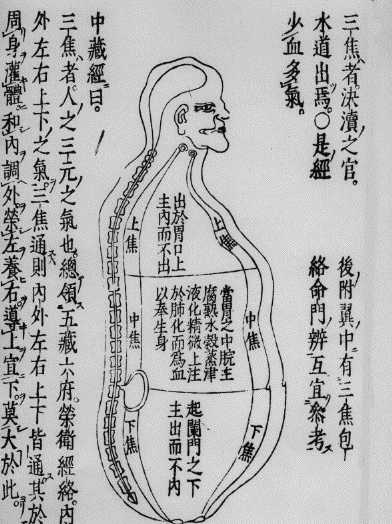 三焦者決瀆之官。
水道出焉。○是經
少血多氣。
後附翼中有三焦包
絡命門辨互宜參考
上焦
出於胃口上
主內而不出
上焦
中焦
當胃之中脘主
腐熟水穀蒸津
液化精微上注
於肺化而為血
以奉生身
中焦
下焦
起闌門之下
主出而不內
下焦
中藏經曰。
三焦者人之三元之氣也總領五藏六府榮衛經絡內
外左右上下之氣三焦通則內外左右上下皆通其於
周身灌體和內調外榮左養右導上宜下莫大於此。